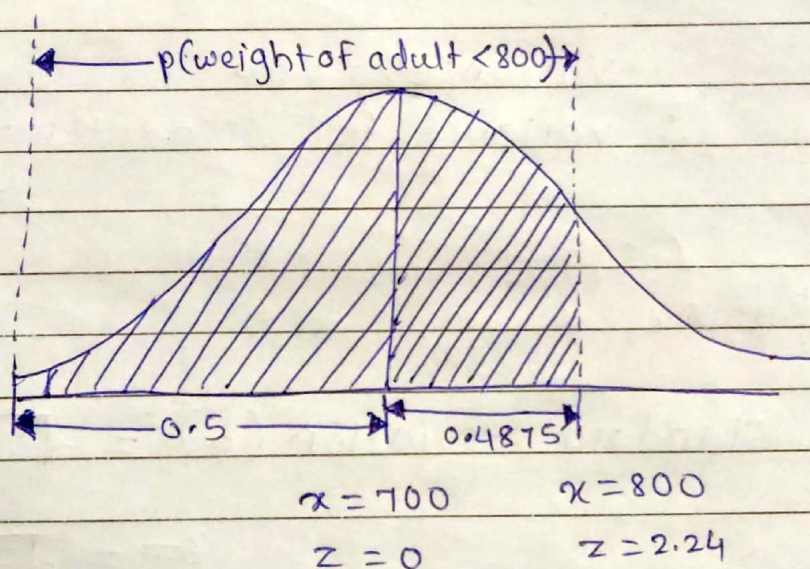 p(weight of adult <800)
0.5
0.4875
x=700 x=800
z=0 z=2.24